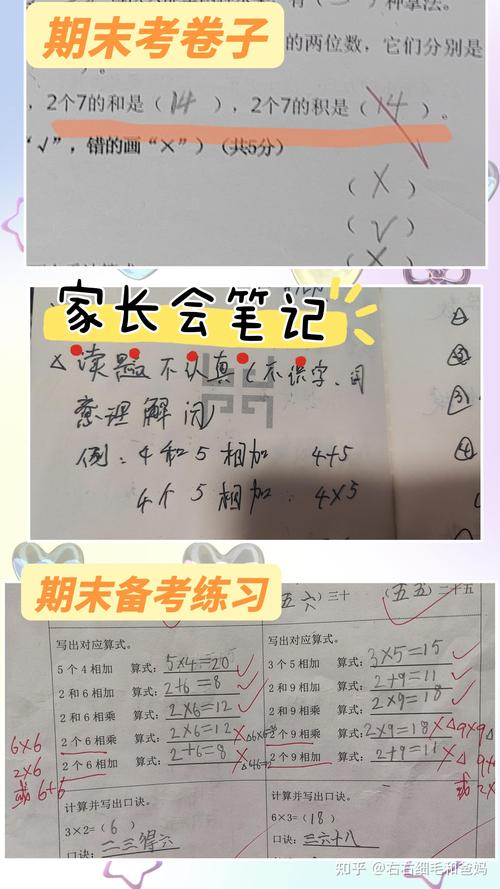 期末考卷子
的两位数，它们分别是
2个7的和是（14），2个7的积是（14）。
“√”，错的画“×”）（共5分）
（×）
（√）
（×）
家长会笔记
△读题不认真（不识字、词
意理解问）
例：4和5相加 4+5
4个5相加：4×5
△
③
③
④
期末备考练习
五六）三十 （五五）二十五
写出对应算式。
5个4相加 算式：5×4=20
2和6相加 算式：2+6=8
2和6相乘 算式：2×6=12
2个6相乘 算式：2×6=12
2个6相加 算式：2+6=8
6×6
2×6
或6+6
计算并写出口诀。
3×2=（6）
口诀：二三得六
写出对应算式。
3个5相加 算式：3×5=15
2和9相加 算式：2+9=11
2和9相乘 算式：2×9=18
2个9相乘 算式：2×9=18
2个9相加 算式：2+9=11
9×9
计算并写出口诀。
6×3=（18）
口诀：三六十八
知乎 @右右细毛和爸妈